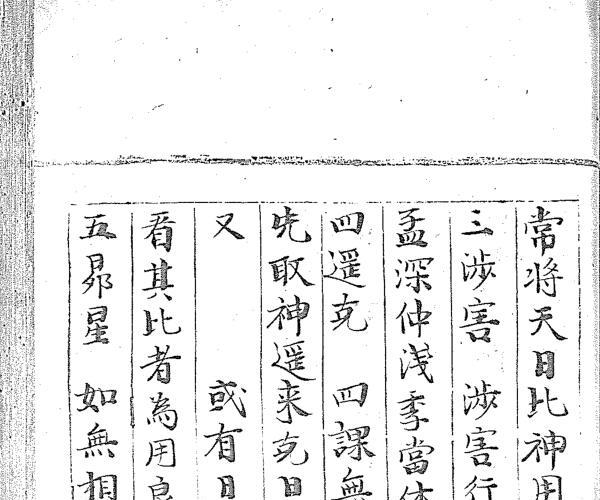 常将天日比神用
三涉害　涉害行
孟深仲浅季當休
四遥克　四課無
先取神遥来克日
又　　　或有日
看其比者為用
五昴星　如無相